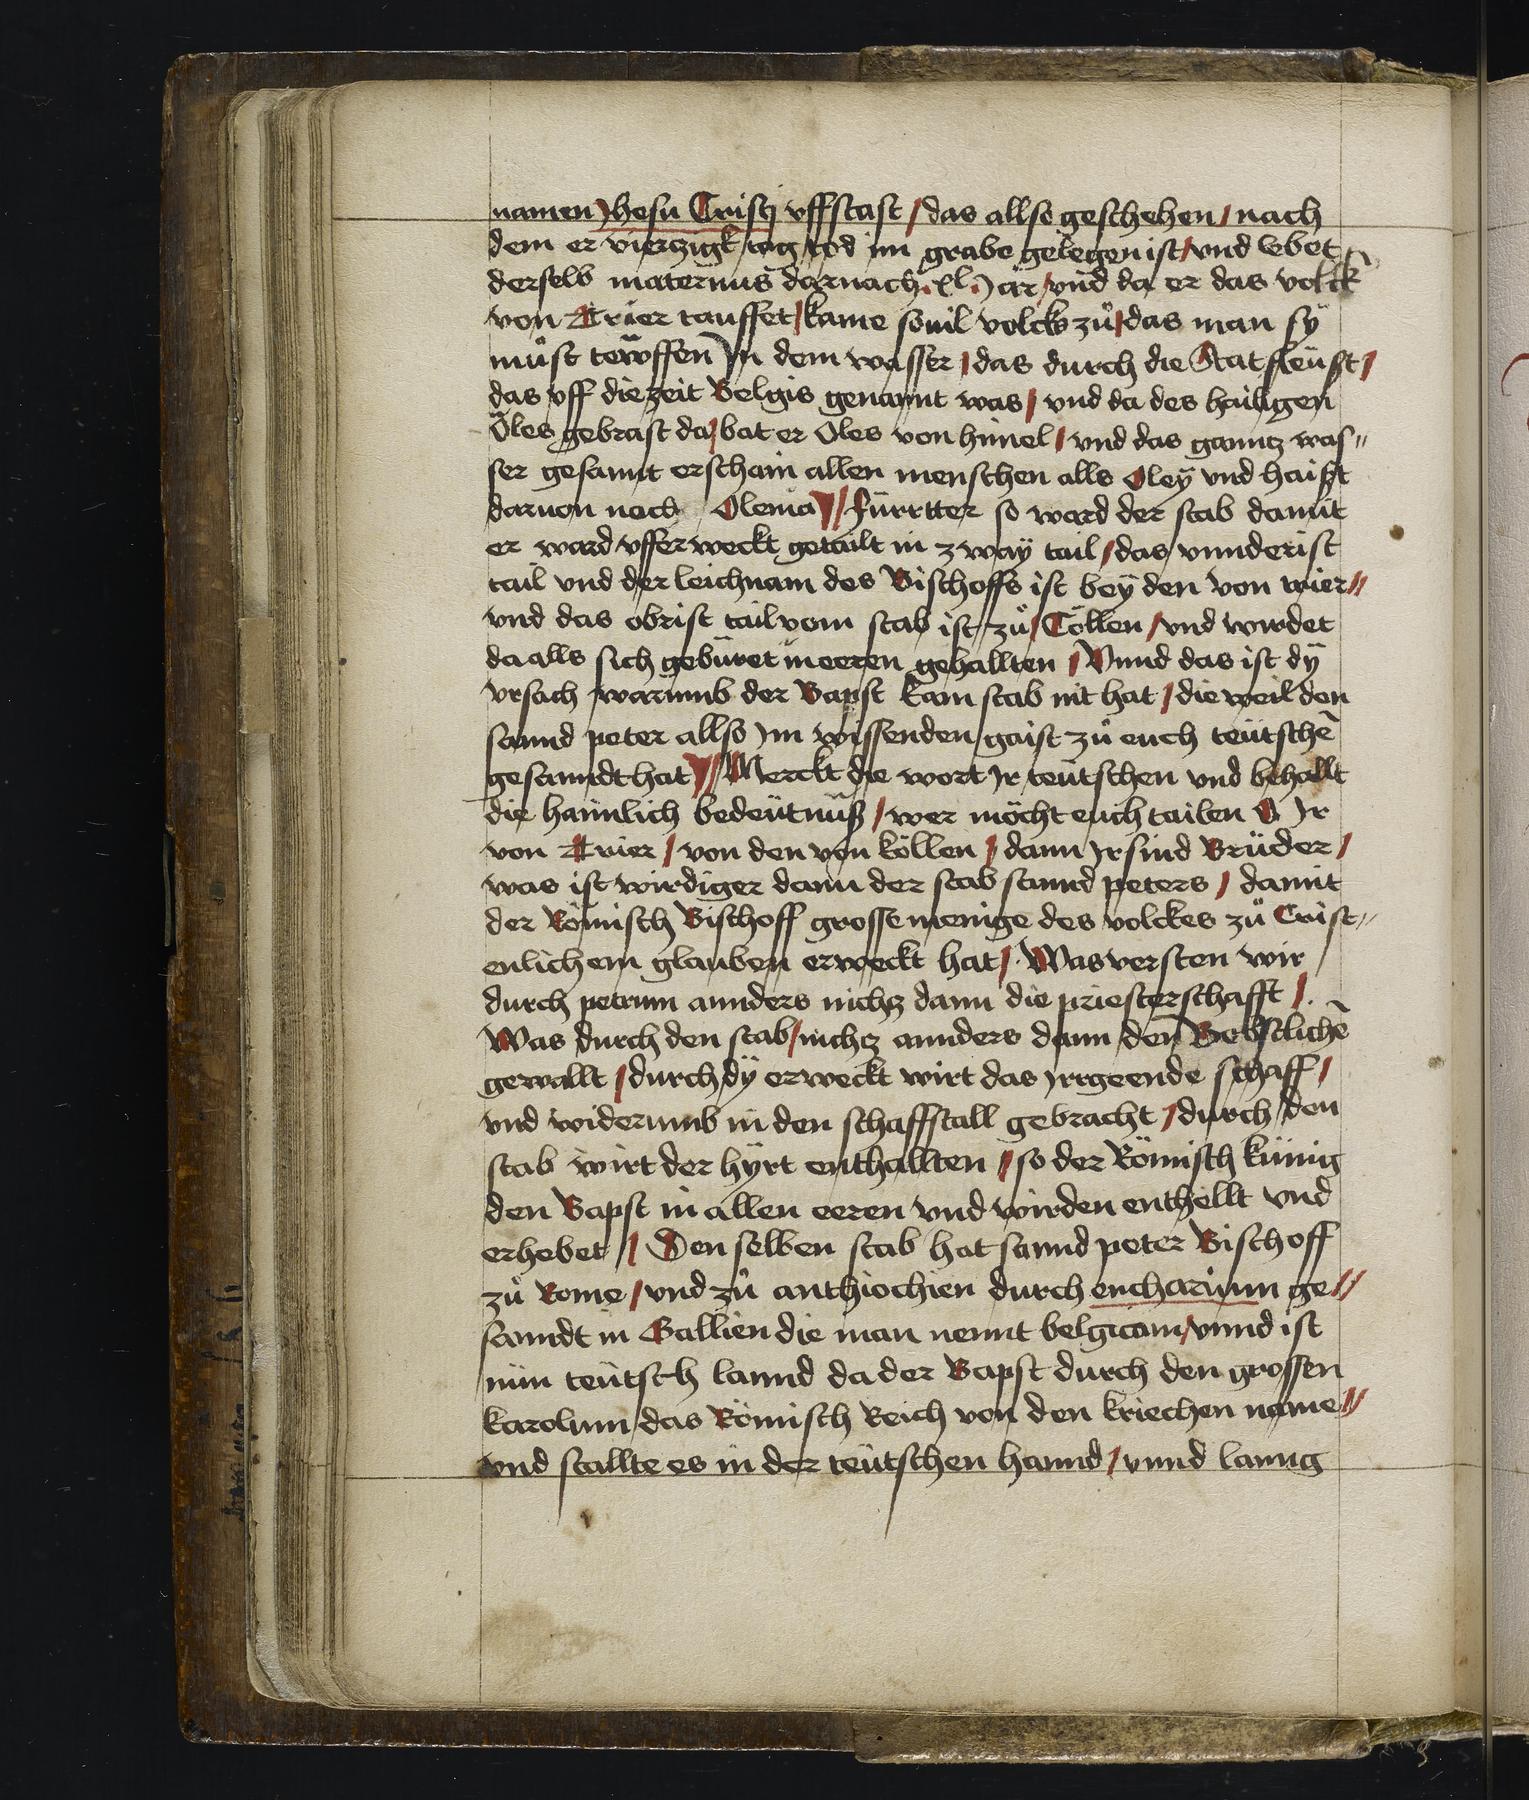 namen Jhesu Cristi vffstast / das allso geschehen / nach
dem er vierzigk tag tod im grabe gelegen ist / vnd lebet
derselb maternus darnach .xl. Jar / vnd da er das volck
von Trier tauffet / kame souil volcks zů / das man sÿ
můst tewffen Jn dem wasser / das durch die Stat fleüst /
das vff die zeit Belgis genannt was / vnd da des hailigen
Öles gebrast da / bat er Öles von himel / vnd das ganntz was„
ser gesamt erschain allen menschen alls Oley vnd haißt
daruon noch Olenia // Fürrtter so ward der stab damit
er ward vfferweckt getailt in zwaÿ tail / das vnnderist
tail vnd der leichnam des Bischoffs ist beÿ den von trier //
vnd das obrist tail vom stab ist zů / Cöllen / vnd wirdet
da alls sich gebüret in eeren gehallten / Vnnd das ist dÿ
vrsach warumb der Bapst kain stab nit hat / die weil den
sannd peter allso Jm wissenden gaist zů euch teütschē
gesanndt hat // Merckt die wort Jr teütschen vnd behallt
die haimlich bedeütnüß / wer möcht euch tailen O Jr
von Trier / von den von köllen / dann Jr sind Brüder /
was ist wirdiger dann der stab sannd peters / damit
der Römisch Bischoff grosse menige des volckes zů Crist„
enlichem glauben erweckt hat / Was versten wir
durch petrum annders nichtz dann die priesterschafft /.
Was durch den stab / nichtz annders dann den Bebstlichē
gewallt / durch dÿ erweckt wirt das Jrrgeende schaff /
vnd widerumb in den schaffstall gebracht / durch den
stab wirt der hÿrt enthallten // so der Römisch künig
den Bapst in allen eeren vnd wirden enthellt vnd
erhebet / Den selben stab hat sannd peter Bischoff
zů Rome / vnd zů anthiochien durch eucharium ge //
sanndt in Gallien die man nennt belgicam / vnnd ist
nün teütsch lannd da der Bapst durch den grossen
karolum das Römisch Reich von den kriechen name //
vnd stallte es in der teütschen hannd / vnnd lanng